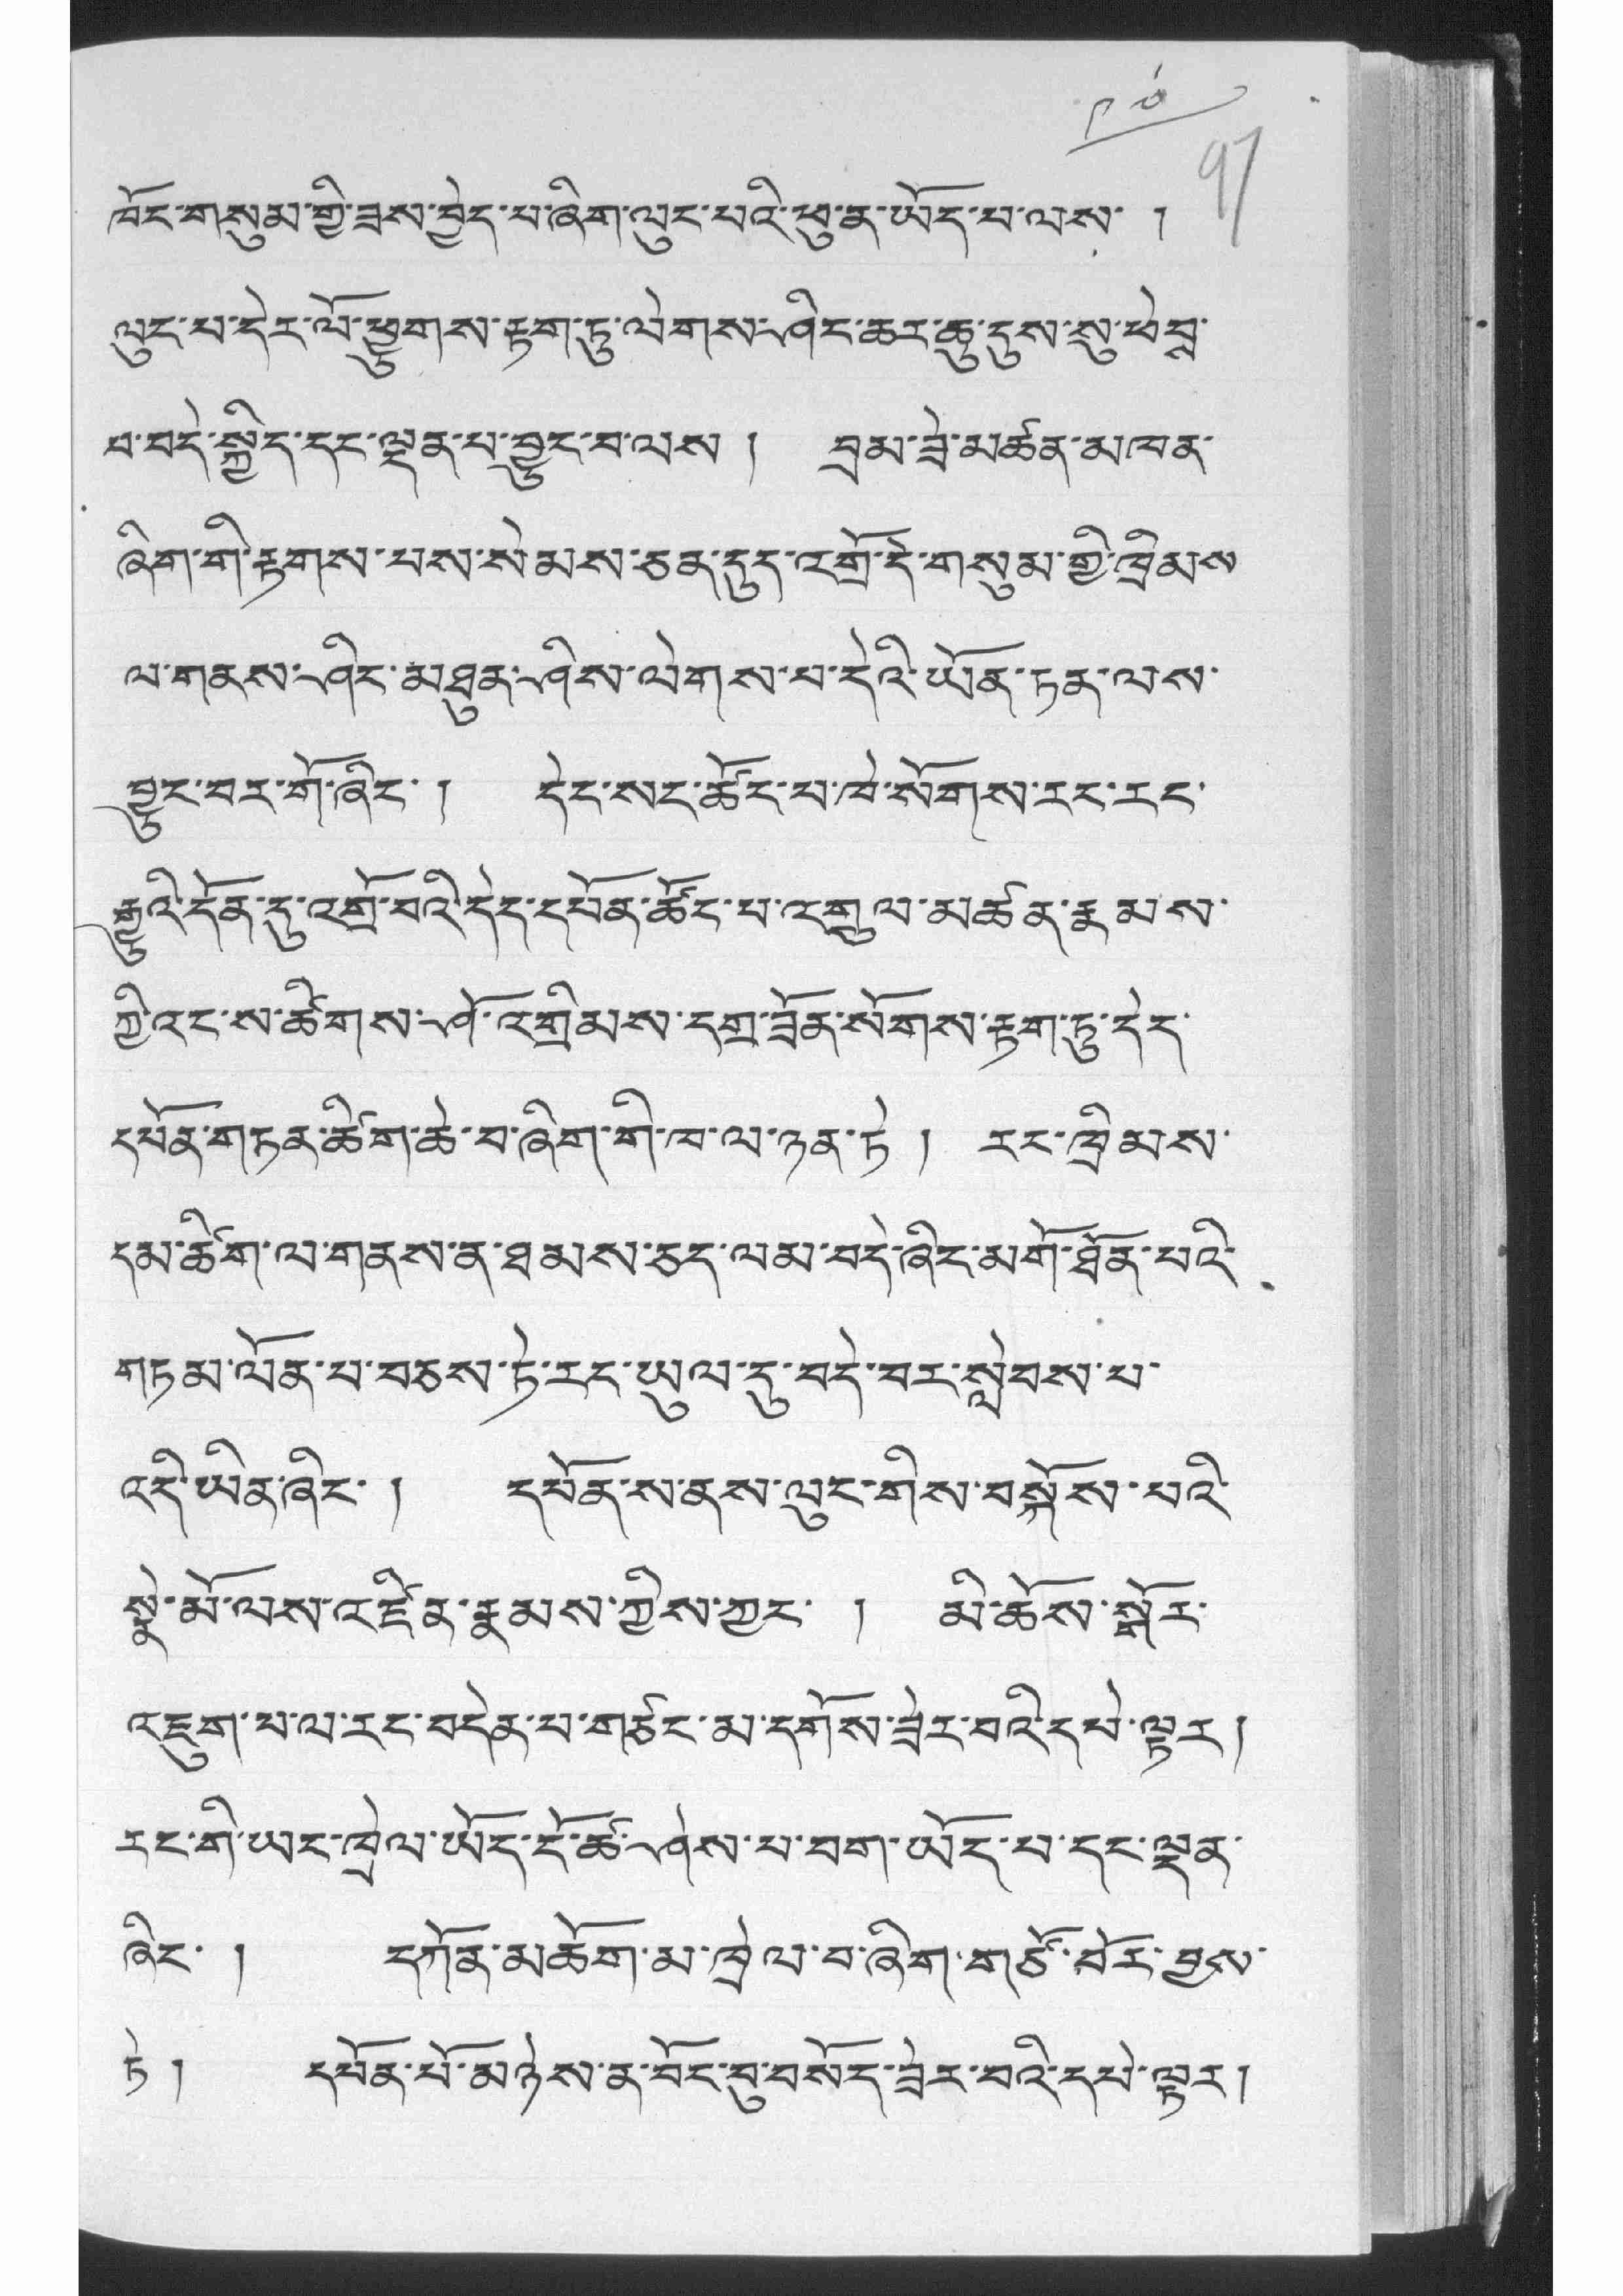 ༩༧
97
ཁོང་གསུམ་གྱི་ཟས་བྱེད་པ་ཞིག་ལུང་པའི་ཕུ་ན་ཡོད་པ་ལས་ །
ལུང་པ་དེར་ལོ་ཕྱུགས་རྟག་ཏུ་ལེགས་ཤིང་ཆར་ཆུ་དུས་སུ་ཕེབས་
པ་བདེ་སྐྱིད་དང་ལྡན་པ་བྱུང་བ་ལས ། བྲམ་ཟེ་མཚན་མཁན་
ཞིག་གི་རྟགས་པས་སེམས་ཅན་དུད་འགྲོ་དེ་གསུམ་གྱི་ཁྲིམས
ལ་གནས་ཤིང་མཐུན་ཤིས་ལེགས་པ་དེའི་ཡོན་ཏན་ལས་
བྱུང་བར་གོ་ཞིང་ ། དེང་སང་ཚོང་པ་ཁེ་སོགས་རང་རང་
རྒྱུའི་དོན་དུ་འགྲོ་བའི་དེད་དཔོན་ཚོང་པ་འགྲུལ་མཚན་རྣམས་
ཀྱིའང་ས་ཚིགས་ཤོ་འགྲིམས་དགྲ་ཟོན་སོགས་རྟག་ཏུ་དེད་
དཔོན་གཏན་ཚིག་ཆེ་བ་ཞིག་གི་ཁ་ལ་ཉན་ཏེ ། རང་ཁྲིམས་
དམ་ཚིག་ལ་གནས་ན་ཐམས་ཅད་ལམ་བདེ་ཞིང་མགོ་ཐོན་པའི་
གཏམ་ལོན་པ་བཅས་ཏེ་རང་ཡུལ་དུ་བདེ་བར་སླེབས་པ་
འདི་ཡིན་ཞིང་ ། དཔོན་ས་ནས་ལུང་གིས་བསྐོས་པའི་
སྣེ་མོ་ལས་འཛིན་རྣམས་ཀྱིས་ཀྱང་ ། མི་ཆོས་སྒོར་
འཇུག་པ་ལ་རང་བདེན་པ་གཙང་མ་དགོས་ཟེར་བའི་དཔེ་ལྟར །
རང་གི་ཡང་ཁྲེལ་ཡོད་ངོ་ཚ་ཤེས་པ་བག་ཡོད་པ་དང་ལྡན་
ཞིང་ ། དཀོན་མཆོག་མ་ཁྲེལ་བ་ཞིག་གཙོ་བོར་བྱས་
ཏེ ། དཔོན་པོ་མཉེས་ན་བོང་བུ་བསོད་ཟེར་བའི་དཔེ་ལྟར །